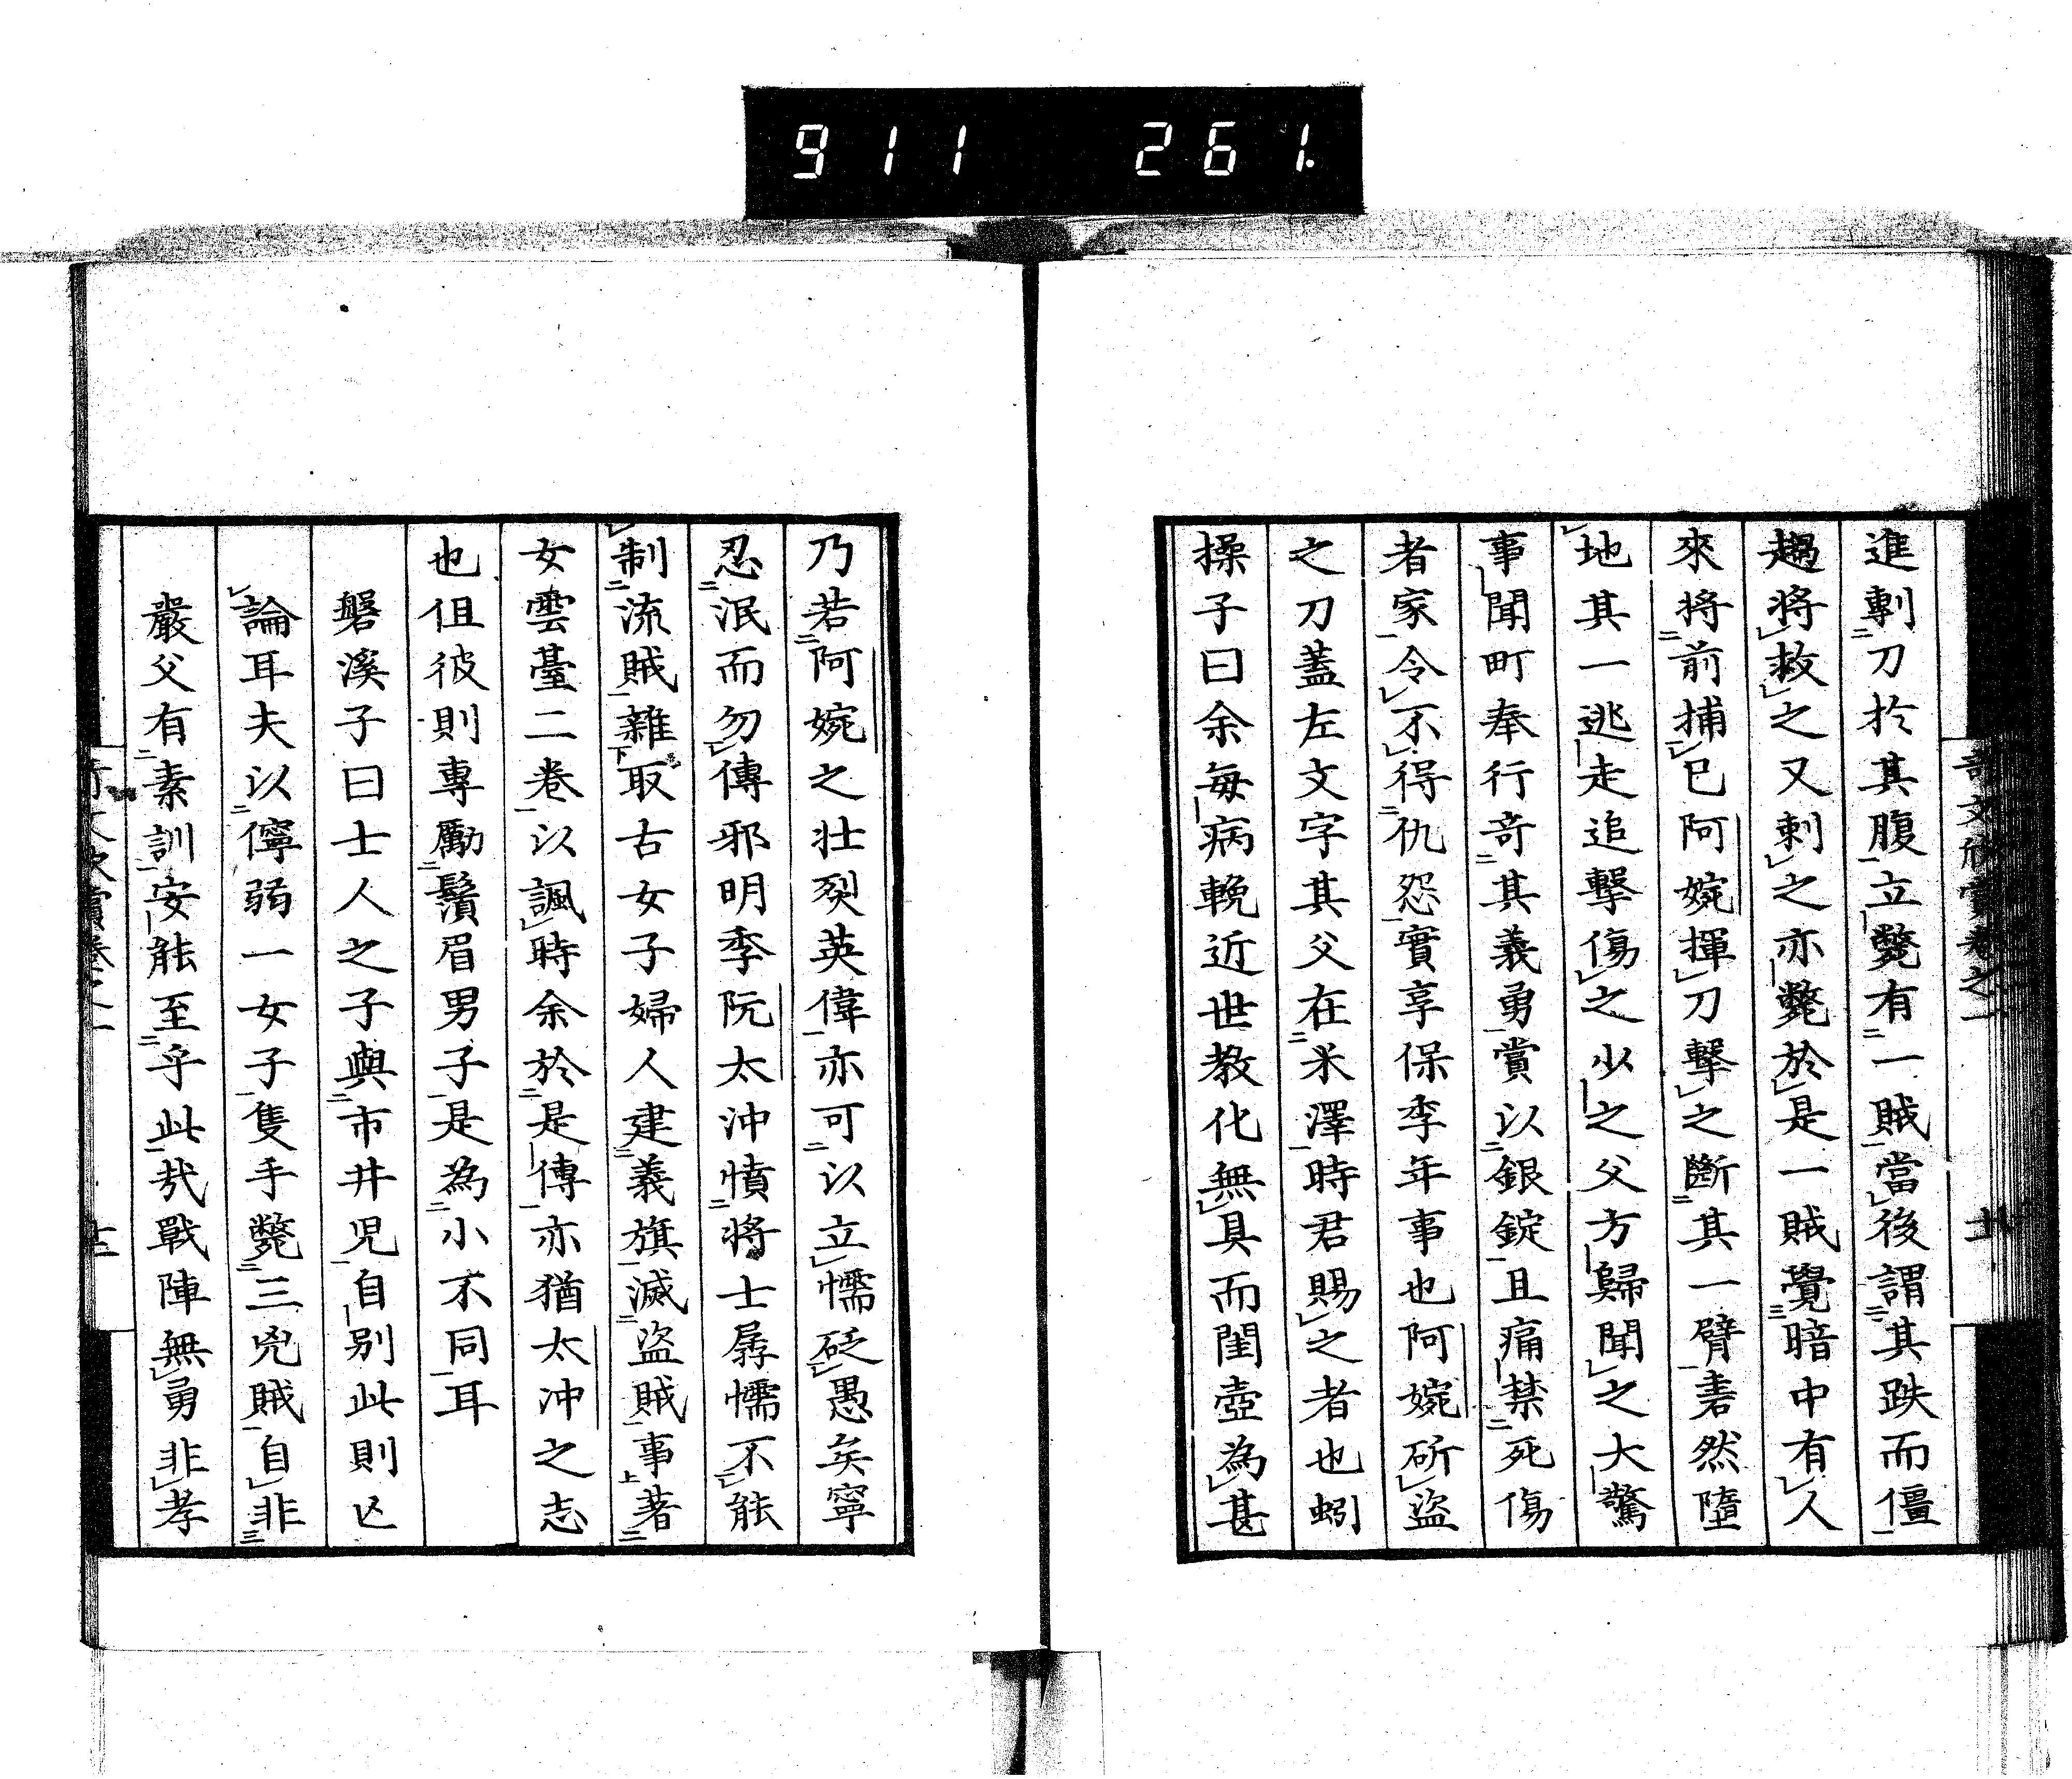 911 261.
進剚刀於其腹立斃有一賊當後謂其跌而僵
趨將救之又刺之亦斃於是一賊覺暗中有人
來將前捕已阿婉揮刀擊之斷其一臂砉然墮
地其一逃走追擊傷之少之父方歸聞之大驚
事聞町奉行奇其義勇賞以銀錠且痛禁死傷
者家令不得仇怨實享保季年事也阿婉斫盜
之刀蓋左文字其父在米澤時君賜之者也蚓
操子曰余每病輓近世教化無具而閨壺為甚
乃若阿婉之壮烈英偉亦可以立懦砭愚矣寧
忍泯而勿傳邪明季阮太沖憤將士孱懦不能
制流賊雜取古女子婦人建義旗滅盜賊事著
女雲臺二卷以諷時余於是傳亦猶太冲之志
也但彼則專勵鬚眉男子是為小不同耳
磐溪子曰士人之子與市井児自別此則亡
論耳夫以儜弱一女子隻手斃三兇賊自非
嚴父有素訓安能至乎此哉戰陣無勇非孝